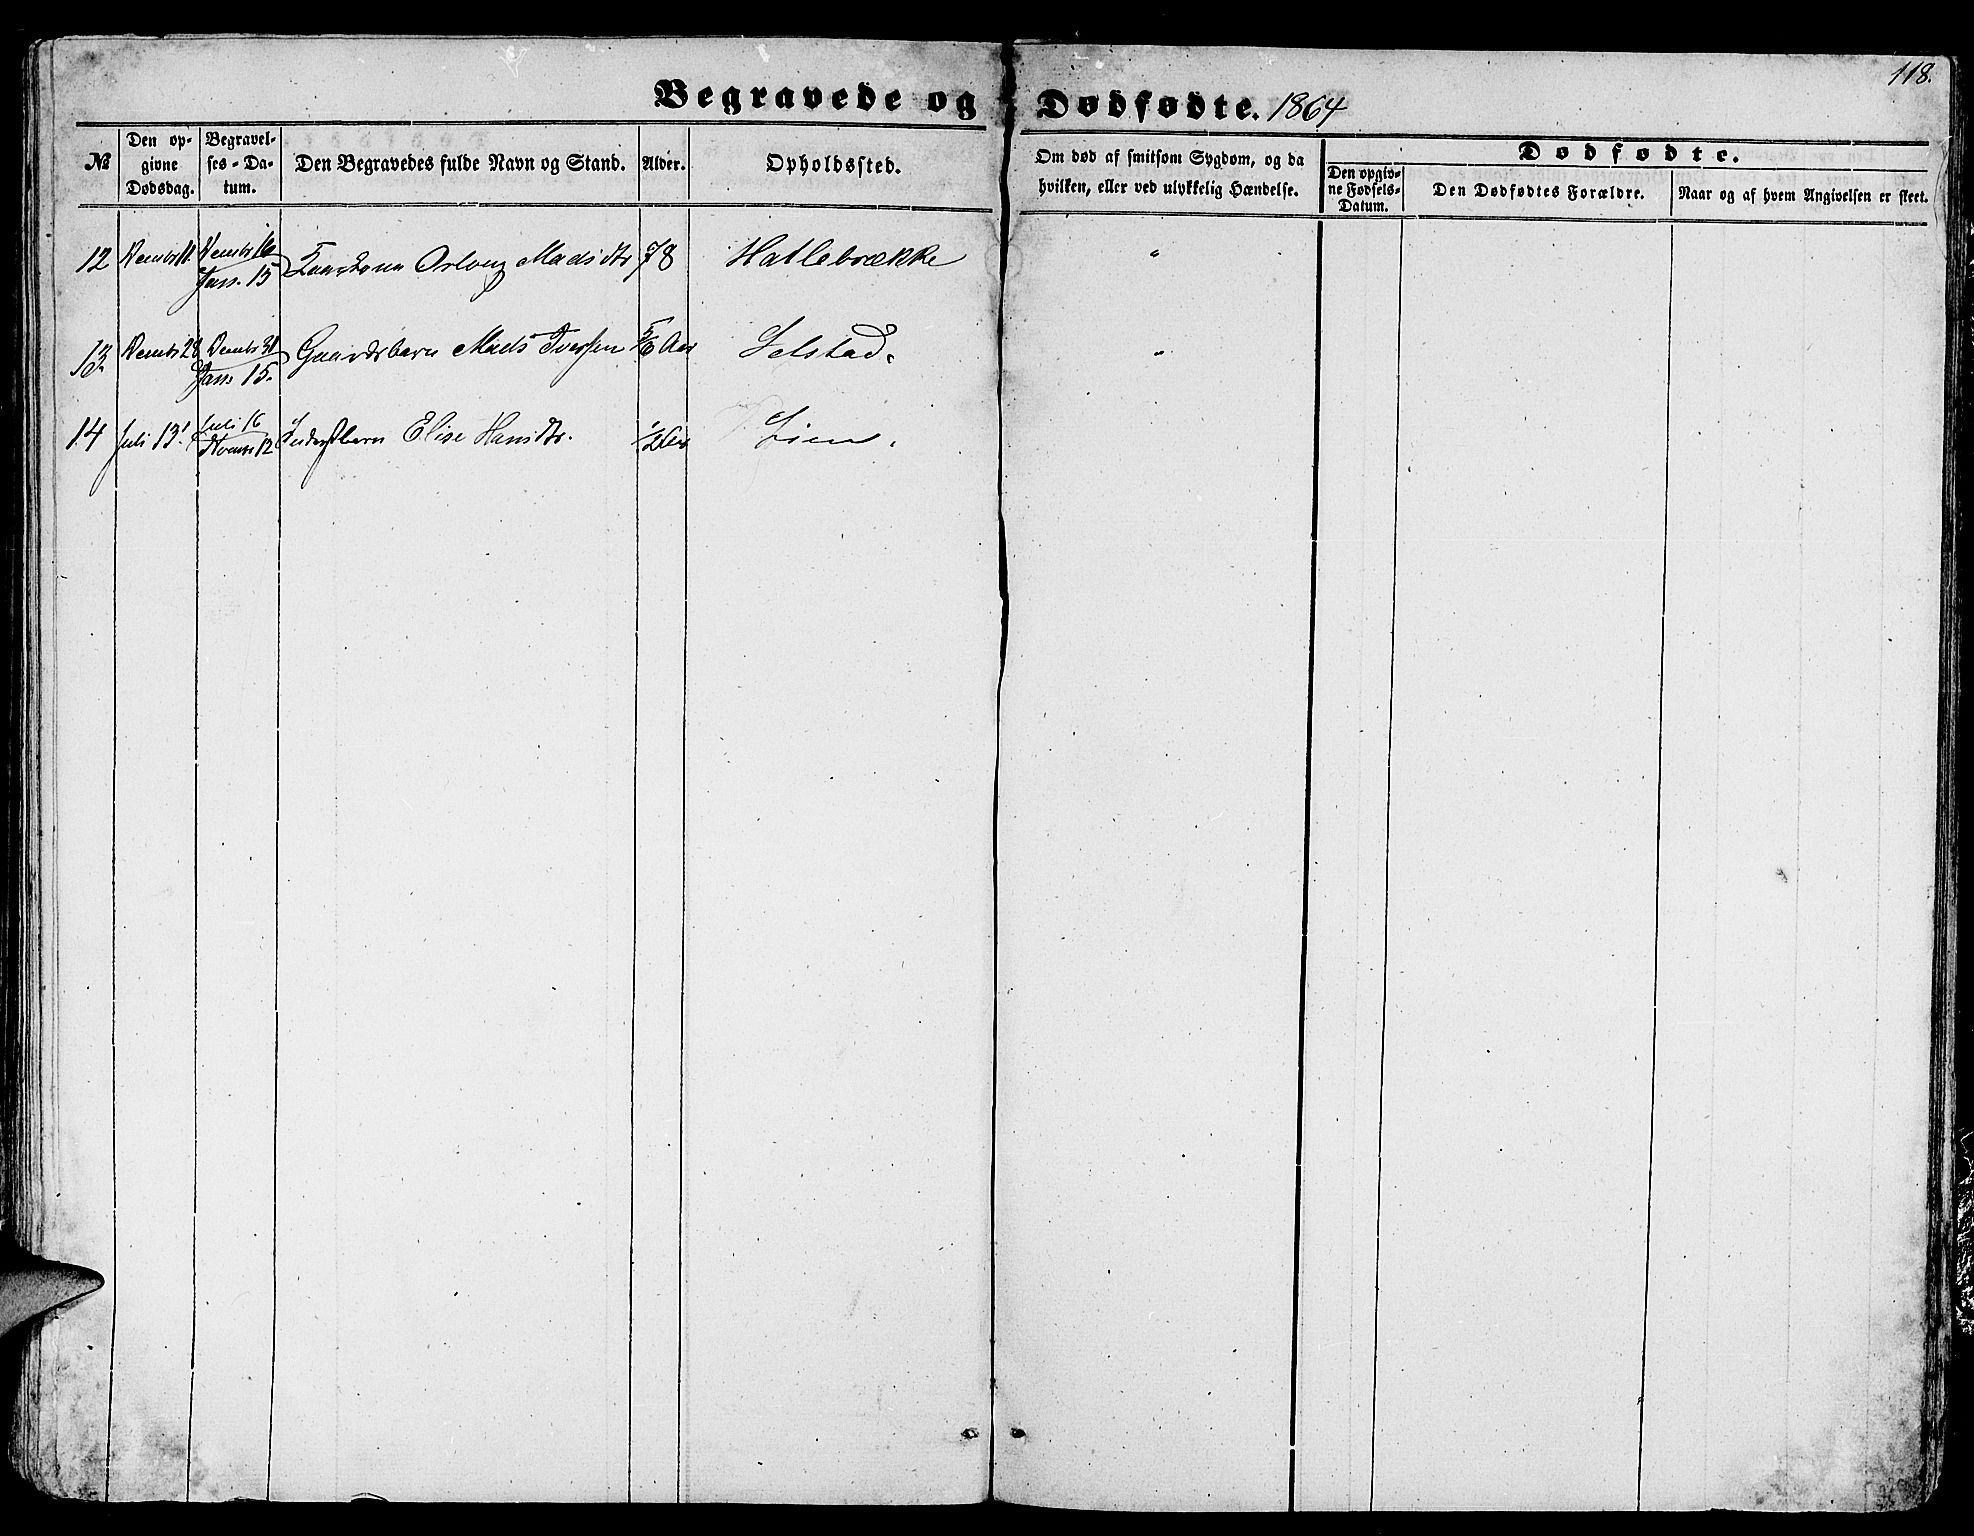 118.
Begravede og Dødfødte. 1864
№
Den op-
givne
Dødsdag.
Begravel-
ses-Da-
tum.
Den Begravedes fulde Navn og Stand.
Alder.
Opholdssted.
Om død af smitsom Sygdom, og da
hvilken, eller ved ulykkelig Hændelse.
Dødfødte.
Den opgiv-
ne Fødsels-
Datum.
Den Dødfødtes Forældre.
Naar og af hvem Angivelsen er skeet.
12 Dembr 11. Dembr 16 Madsdtr 78 Hatlebrække "
Jan. 15
13. Dembr 28 Dembr 31 Gaardsbarn Mads Iversen 5/6 Aar Selstad. "
Jan. 15.
14 Juli 13. Juli 16 Inderstbarn Elise Hansdtr. 1/2 Aar Lien.
Novembr 12